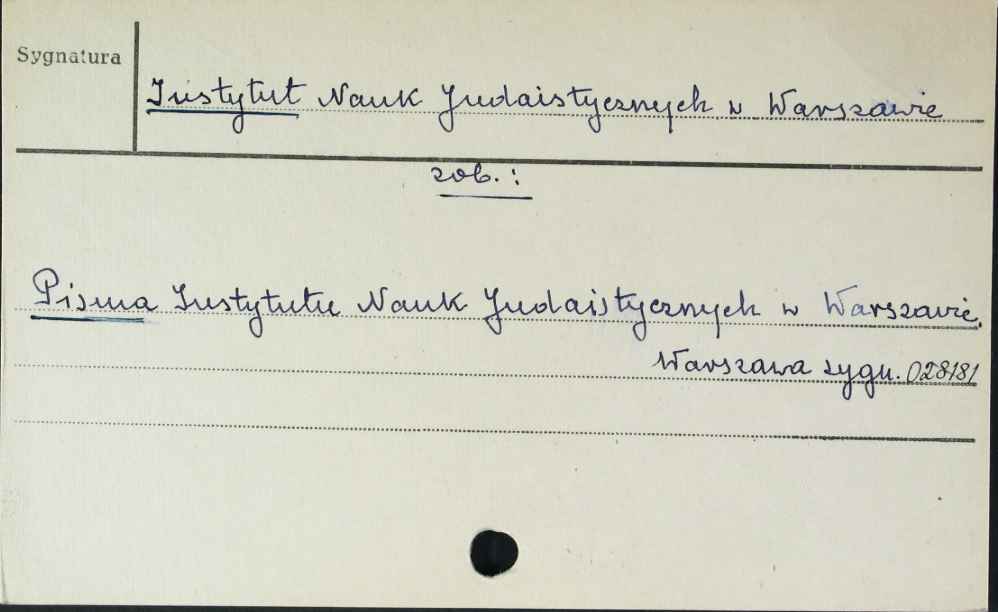 Sygnatura
Instytut Nauk Judaistycznych w Warszawie
zob. :
Pisma Instytutu Nauk Judaistycznych w Warszawie.
Warszawa sygn. 028181